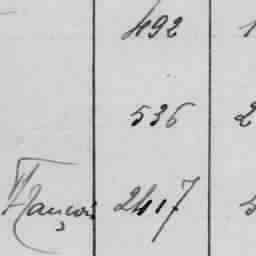 492 1
536 2
Français 2417 5